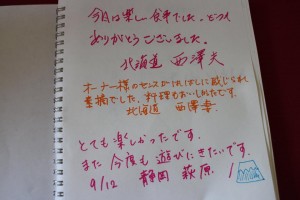 今日は楽しい食事でした。どうも
ありがとうございました。
北海道 西澤夫
オーナー様のセンスがいたるところに感じられ
素敵でした。料理もおいしかったです。
北海道 西澤妻
とても楽しかったです。
また 今度も 遊びにきたいです。
9/12 静岡 萩原